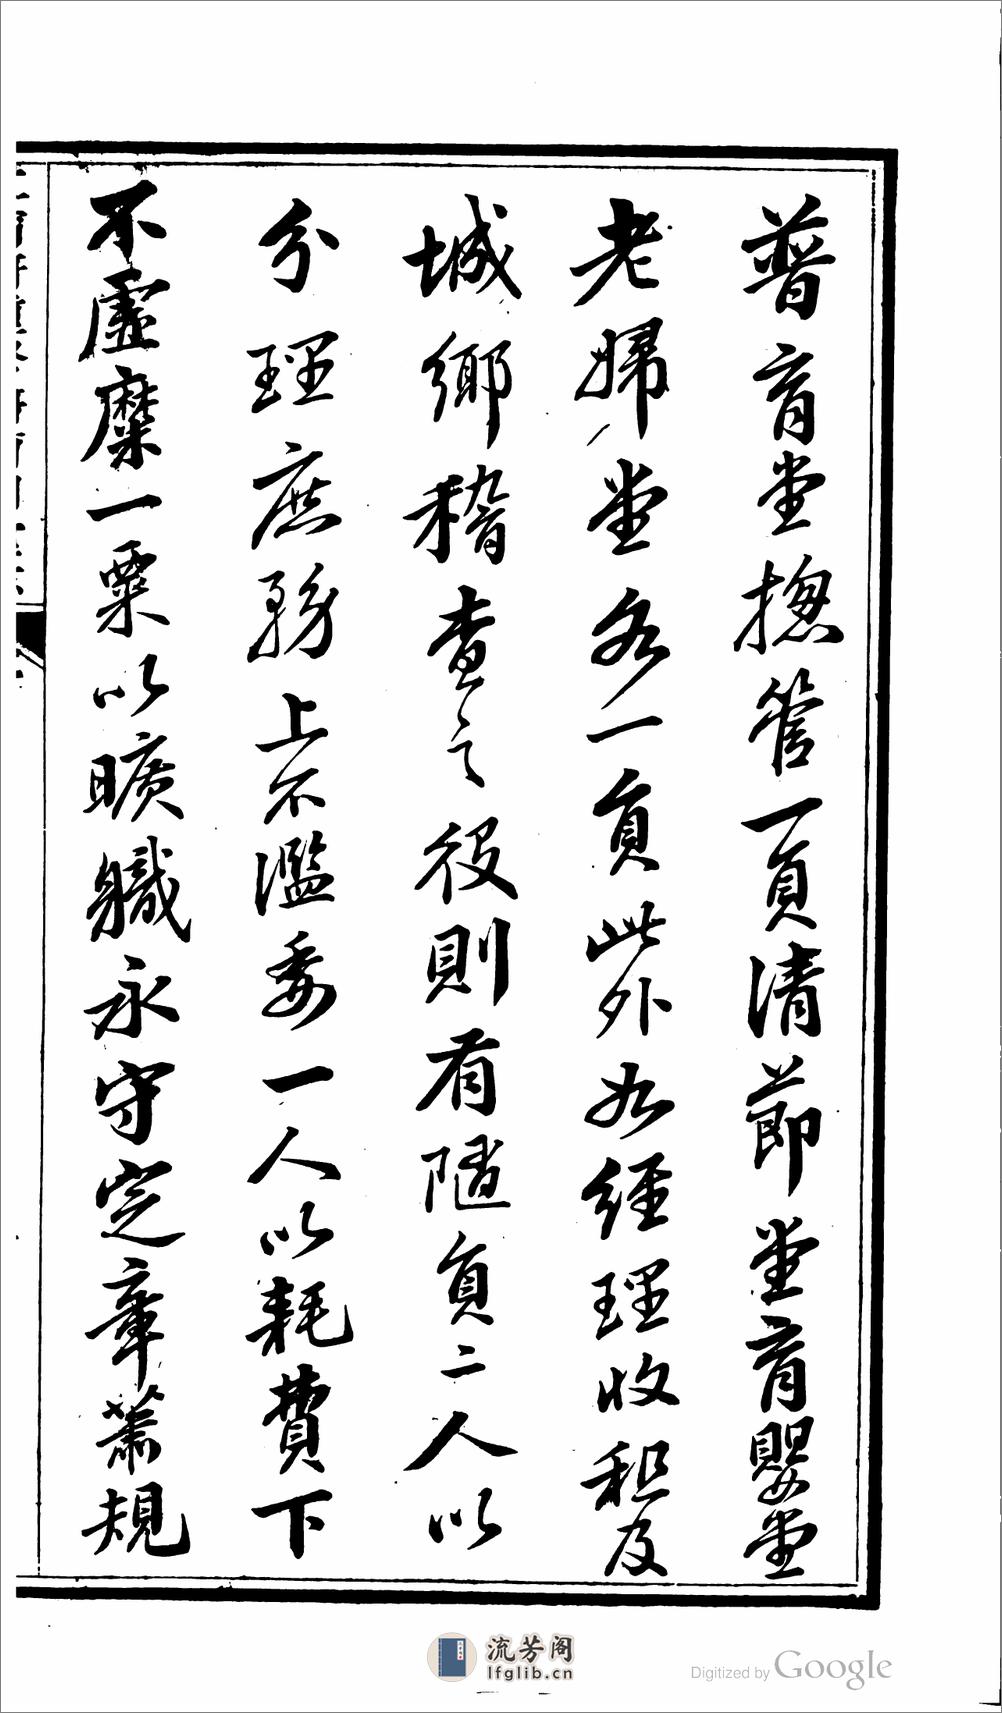 普育堂摠管一員清節堂育嬰堂
老婦堂各一員此外如經理收租及
城鄉稽查之役則有隨員二人以
分理庶務上不濫委一人以耗費下
不虛糜一粟以曠職永守定章蕭規
流芳阁
lfglib.cn
Digitized by Google